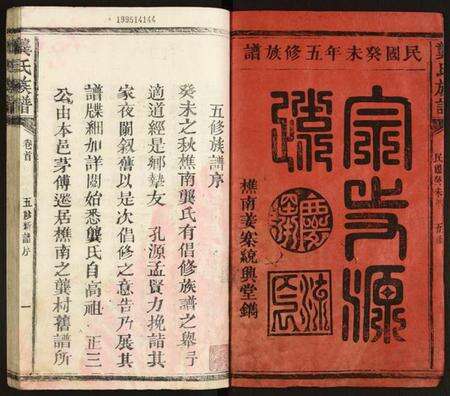 民國癸未年五修族譜
宗支源
遠
慶
流
長
樵南姜寨統興堂鐫
龔氏族譜
民國癸未
199514144
五修族譜序
癸未之秋樵南龔氏有倡修族譜之舉予
適道經是鄉摯友 孔源孟賢力挽請其
家夜闌叙舊以是次倡修之意告乃展其
譜牒細加詳閱始悉龔氏自高祖 正三
公由本邑茅傅遷居樵南之龔村舊譜所
龔氏族譜
卷首
五修譜序
一